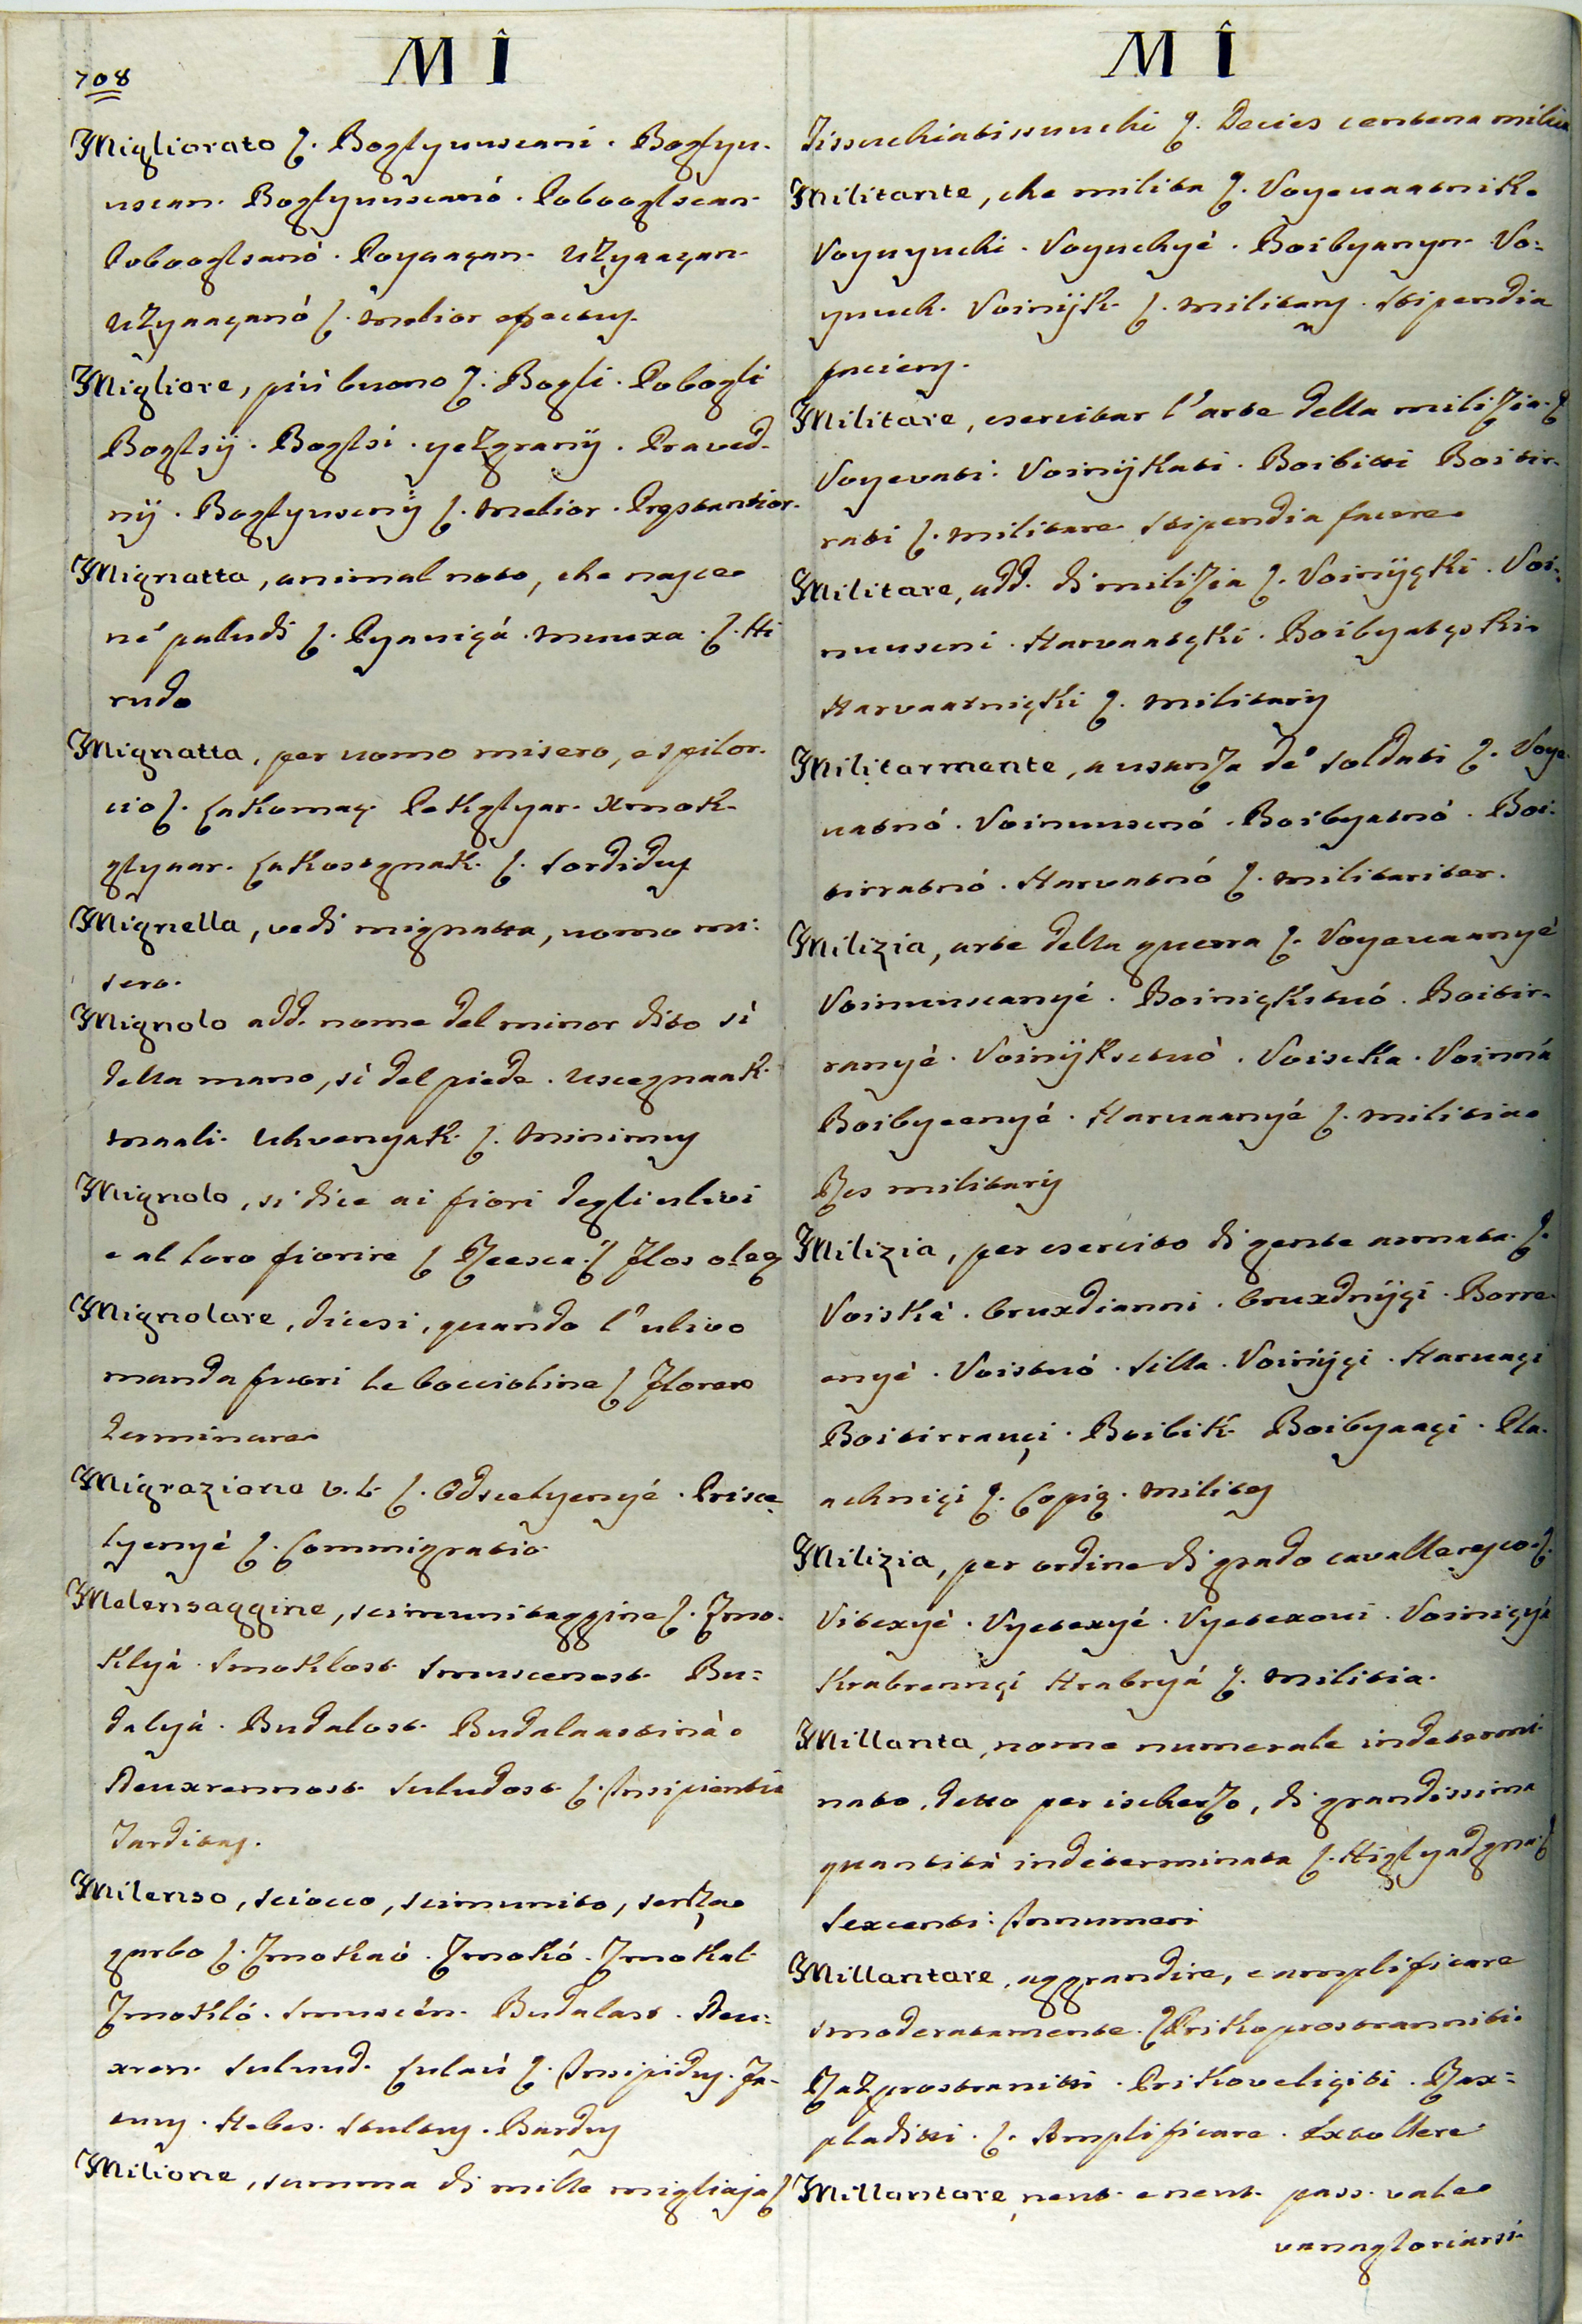 708
M I
Migliorato ʃ. Boglyuuscani. Boglyu-
uscan. Boglyuuscanó. Pobooglscan.
Poboogls̄anó. Poyaaçan. Uzyaaçan.
Uzyaaçanó ʃ. Melior effectus.
Migliore, più buono ʃ. Bogli. Pobogli
Boglsij. Boglsi. yezgranij. Praved-
nij. Boglyuscnij ʃ. Melior. Pręstantior.
Mignatta, animal noto, che nasce
né paludi ʃ. Pyaviçá. Muuxa. ʃ. Hi
rudo
Mignatta, per uomo misero, e spilor-
cio ʃ. Lakomaç. Pokglyar. Xmok-
glyaar. Lakostgnak. ʃ. Sordidus
Mignella, vedi mignatta, uomo mi-
sero.
Mignolo add. nome del minor dito sì
della mano, sì del piede. Uscegnaak.
Maali. Uhvenyak. ʃ. Minimus
Mignolo, si dice ai fiori degli ulivi
e al loro fiorire ʃ Reesca. ʃ Flos oleę
Mignolare, dicesi, quando l'ulivo
manda fuori le boccioline ʃ Florere
Germinare
Migrazione v. l. ʃ. Odscelyenyé. Prisce
lyenyé ʃ. Commigratio
Melensaggine, scimunitaggine ʃ. Smo-
klyá. Smoklost. Smuscenost. Bu-
dalyá. Budalost. Budalaastiná
Neuxrennost. Suludost. ʃ. Insipientia
Tarditas.
Milenso, sciocco, scimunito, senza
garbo ʃ. Smokaó. Smokó. Smokal
Smokló. Smuscén. Budalast. Neu-
xren. Suluud. Lulaú ʃ. Insipidus. Fa-
tuus. Hebes. Stultus. Bardus
Milione, summa di mille migliaja ʃ
M I
Tissuchiatissuuchi ʃ. Decies centena milia
Militante, che milita ʃ. Voyevaatnik
Voyuyuchi. Voyuchyé. Boibyanyn. Vo-
yuuch. Voinijk. ʃ. Militans. Stipendia
faciens.
Militare, esercitar l'arte della milizia. ʃ
Voyevati. Voinijkati. Boibitti Boitir-
rati ʃ. Militare Stipendia facere
Militare, add. di milizia ʃ. Voinijçki. Voi-
nuuscni. Harvaatçki. Boibyatçski
Harvaatniçki ʃ. Militaris
Militarmente, a usanza de' soldati ʃ. Voye
vatnó. Voinuuscnó. Boibyatnó. Boi-
tirratnó. Harvatnó ʃ. Militariter.
Milizia, arte della guerra ʃ. Voyevaanyé
Voinuuscanyé. Boiniçkstuó. Boitir-
ranyé. Voinijkstuó. Voiscka. Voinná
Boibyeenyé. Harvaanyé ʃ. Militia
Res militaris
Milizia, per esercito di gente armata. ʃ.
Voiské. Oruxdianni. Oruxdnijçi. Borre-
enyé. Voistuó. Silla. Voinijçi. Harvaçi
Boitirrauçi. Boibik. Boibyaaçi. Pla-
achniçi ʃ. Copię. Milites
Milizia, per ordine di grado cavalleresco. ʃ.
Vitexyé. Vyetexyé. Vyetexovi. Voiniçyá
Krabrennçi Hrabryá ʃ. Militia.
Millanta, nome numerale indetermi-
nato, detto per ischerzo, di grandissima
quantità indeterminata ʃ. Higlyadgna. ʃ
Sexcenti: Innumeri
Millantare, aggrandire, e amplificare
smoderatamente. ʃ Prikoprostranniti.
Razprostranitti. Prikoveliçiti. Rax-
pladitti. ʃ. Amplificare. Extollere
Millantare, neut. e neut. pass. vale
vanagloriarsi